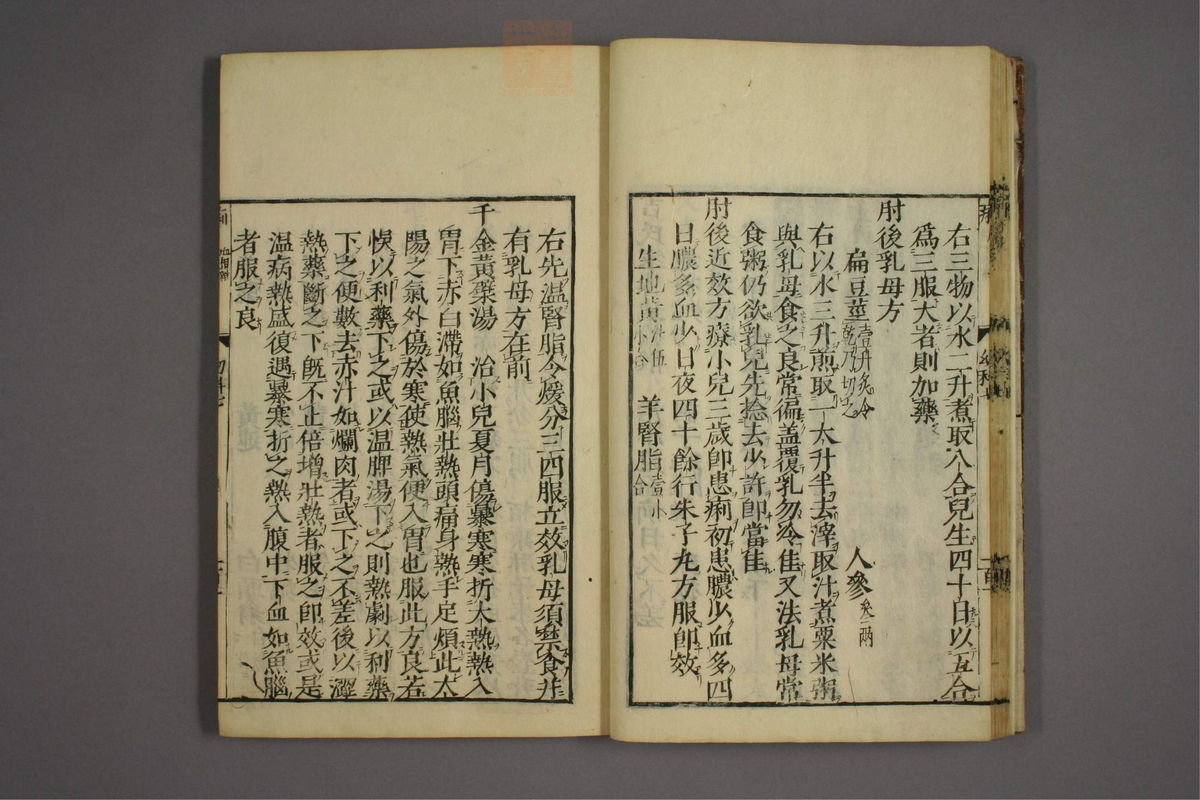 右三物以水二升煮取八合兒生四十日以五合
爲三服大者則加藥
肘後乳母方
扁豆莖 人參
右以水三升煎取一大升半去滓取汁煮粟米粥
與乳母食之良常偏盖覆乳勿冷佳又法乳母常
食粥仍欲乳兒先捻去少許即當佳
肘後近效方療小兒三歲即患痢初患膿少血多四
日膿多血少日夜四十餘行朱子丸方服即效
生地黃 羊腎脂
右先温腎脂令煖分三四服立效乳母須禁食并
有乳母方在前
千金黃檗湯 治小兒夏月傷暴寒寒折大熱熱入
胃下赤白滯如魚腦壯熱頭痛身熱手足煩此太
陽之氣外傷於寒使熱氣便入胃也服此方良若
悮以利藥下之或以温脾湯下之則熱劇以利藥
下之便數去赤汁如爛肉者或下之不差後以澀
熱藥斷之下旣不止倍增壯熱者服之即效或是
温病熱盛復遇暴寒折之熱入腹中下血如魚腦
者服之良